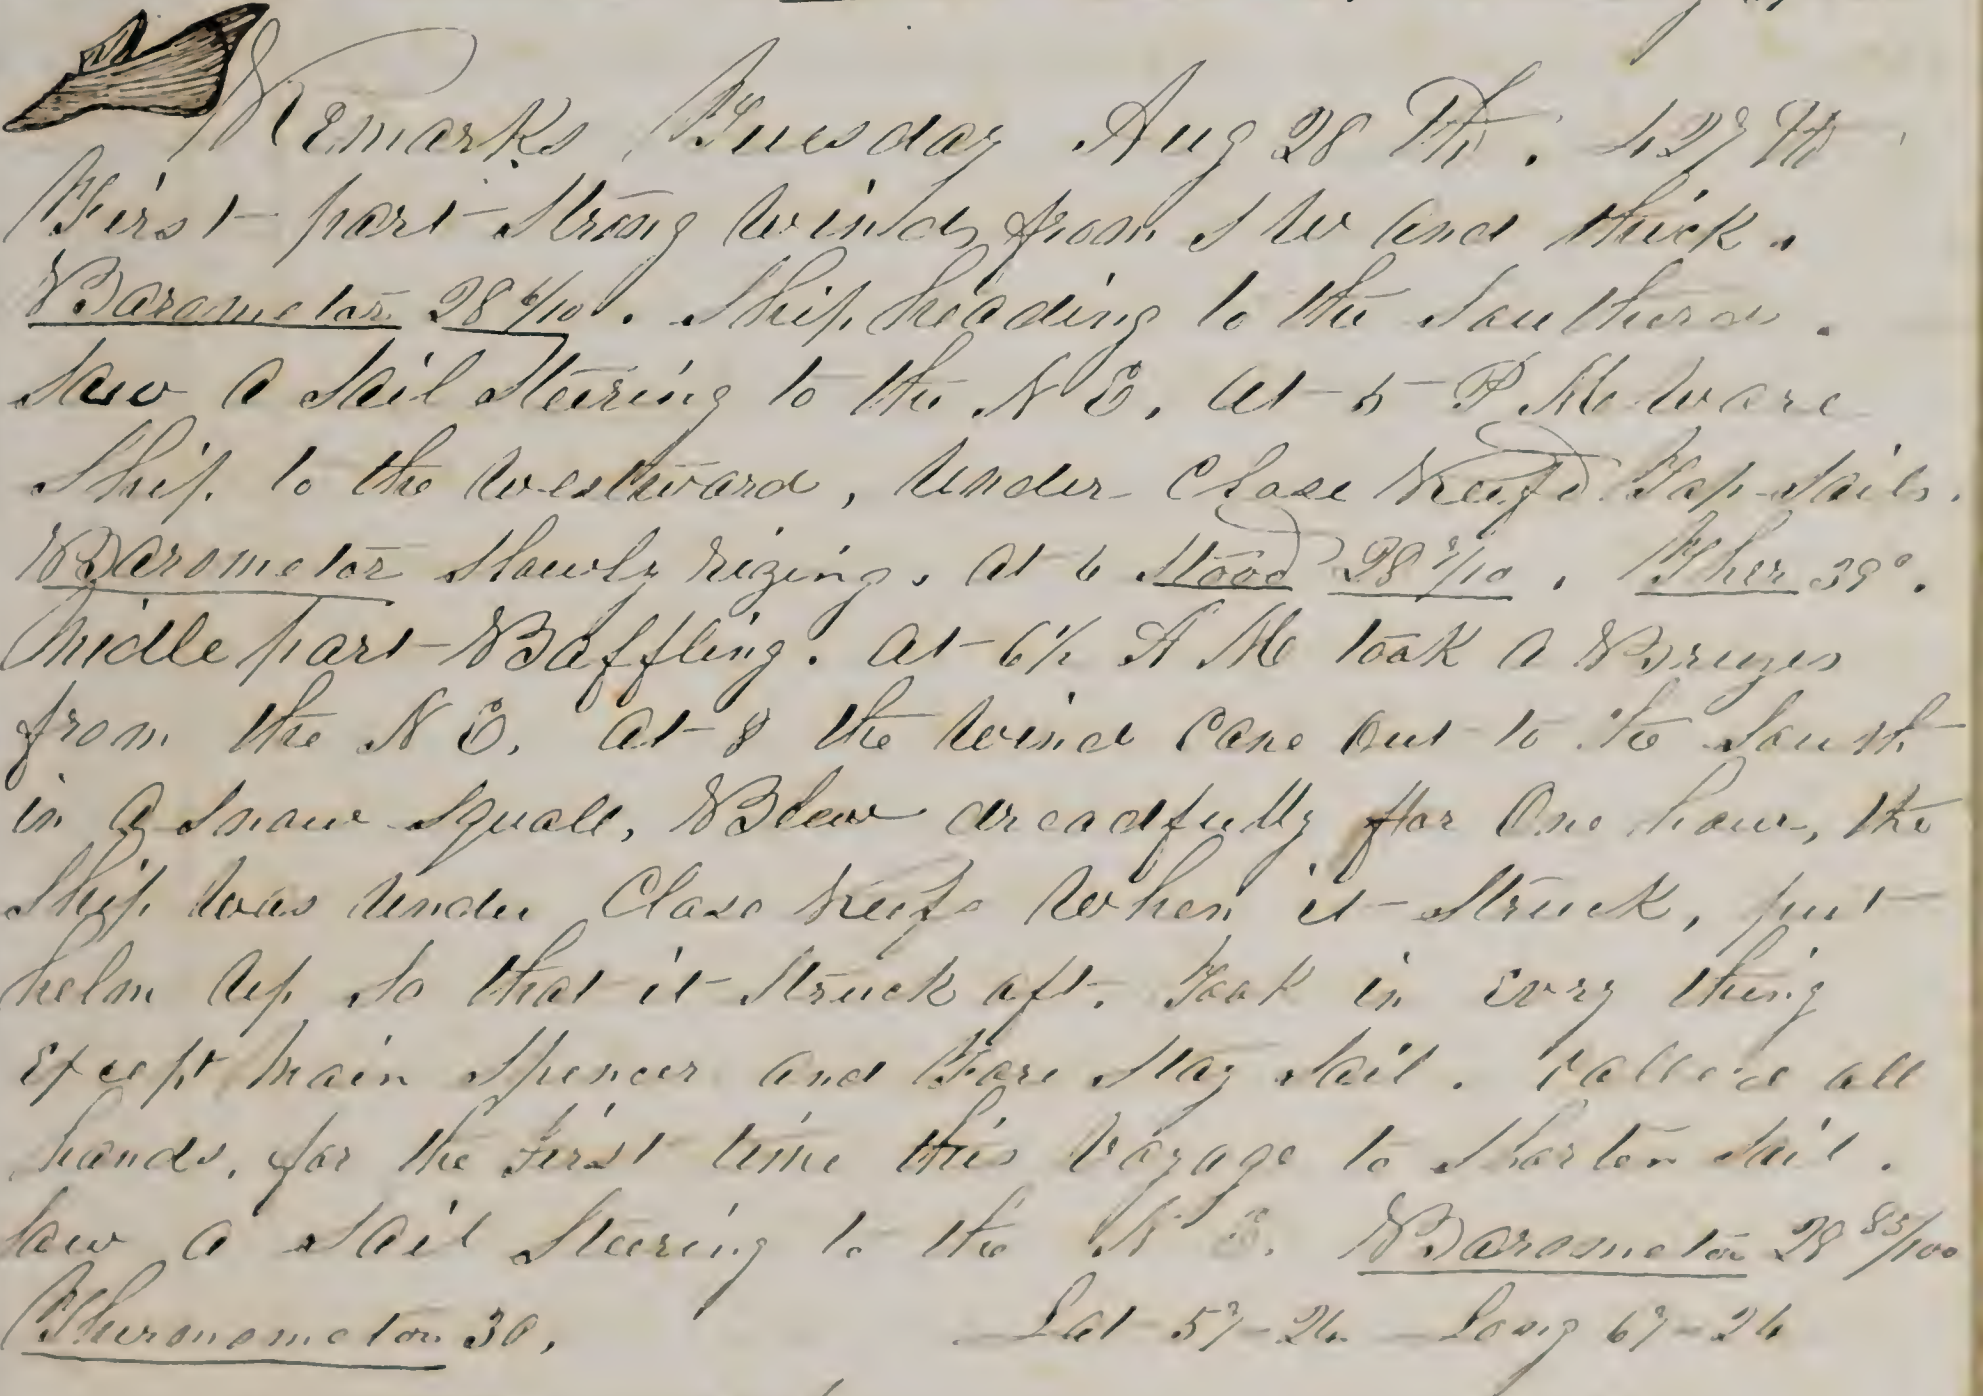 Remarks, Tuesday Aug 28 Th. 427 Th
First part Strong Winds from S W and thick.
Barometor 28 6/10. Ship heading to the Southerd.
Saw a Sail Steering to the N E. at 5 P M Ware
Ship to the Westward, Under Close Reef'd Top-Sails.
Barometor Slowly rizing. at 6 Stood 28 7/10. Ther 39°.
Midle part Baffling. At 6 1/2 A M took a Breezes
from the N E. At 8 the Wind Came Out to the South
in a Snow Squall, Blew dreadfully for One hour, the
Ship Was Under Close Reefs When it Struck, put
helm Up So that it Struck aft. Took in Evry thing
Except Main Spencer and Fore Stay Sail. Called all
hands, for the First time this Voyage to Shorten Sail.
Saw a Sail Steering to the N E. Barometor 28 85/100
Thermometor 30, Lat 57-26 Long 67-26